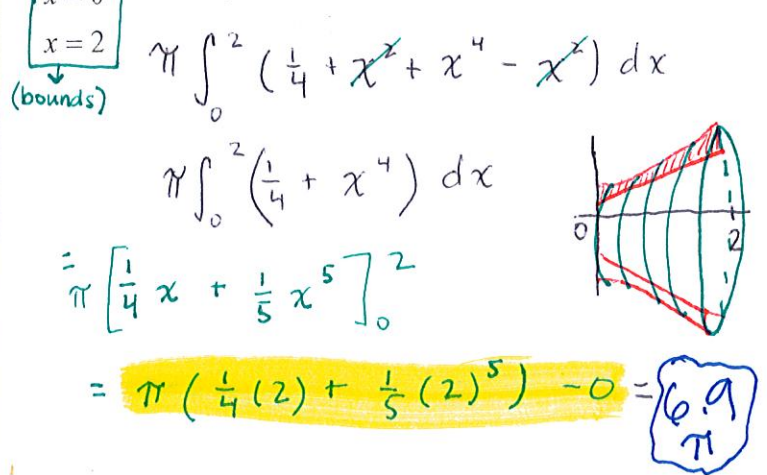 x = 2
(bounds)
π ∫₀² (1/4 + x² + x⁴ - x²) dx
π ∫₀² (1/4 + x⁴) dx
= π [1/4 x + 1/5 x⁵]₀²
0 2
= π (1/4 (2) + 1/5 (2)⁵) - 0 = 6.9 π